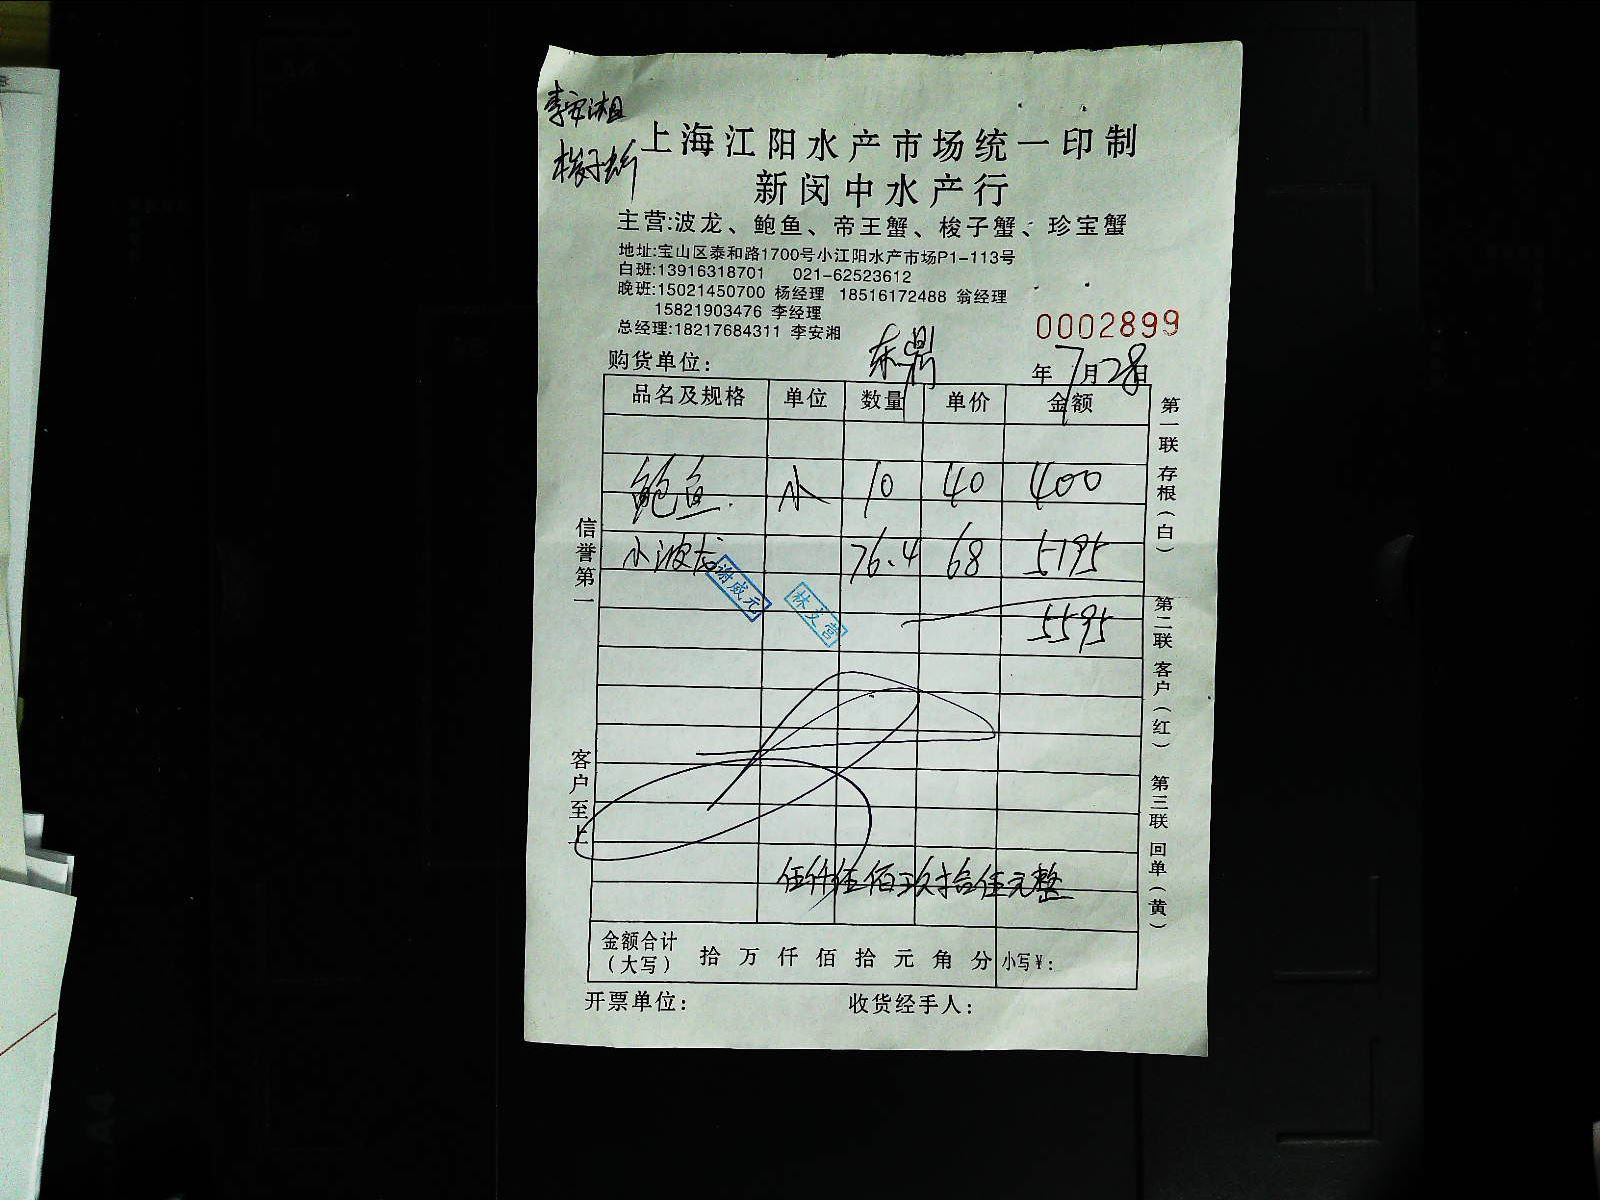 李安湘
上海江阳水产市场统一印制
新闵中水产行
主营:波龙、鲍鱼、帝王蟹、梭子蟹、珍宝蟹
地址:宝山区泰和路1700号小江阳水产市场P1-113号
白班:13916318701 021-62523612
晚班:15021450700 杨经理 18516172488 翁经理
15821903476 李经理
总经理:18217684311 李安湘
0002899
购货单位: 东鼎
年7月28日
品名及规格 单位 数量 单价 金额
鲍鱼 小 10 40 400
小波龙 76.4 68 5195
谢威元
林文营
5595
伍仟伍佰玖拾伍元整
金额合计(大写) 拾 万 仟 佰 拾 元 角 分 小写¥:
开票单位: 收货经手人:
信誉第一
客户至上
第一联 存根(白)
第二联 客户(红)
第三联 回单(黄)